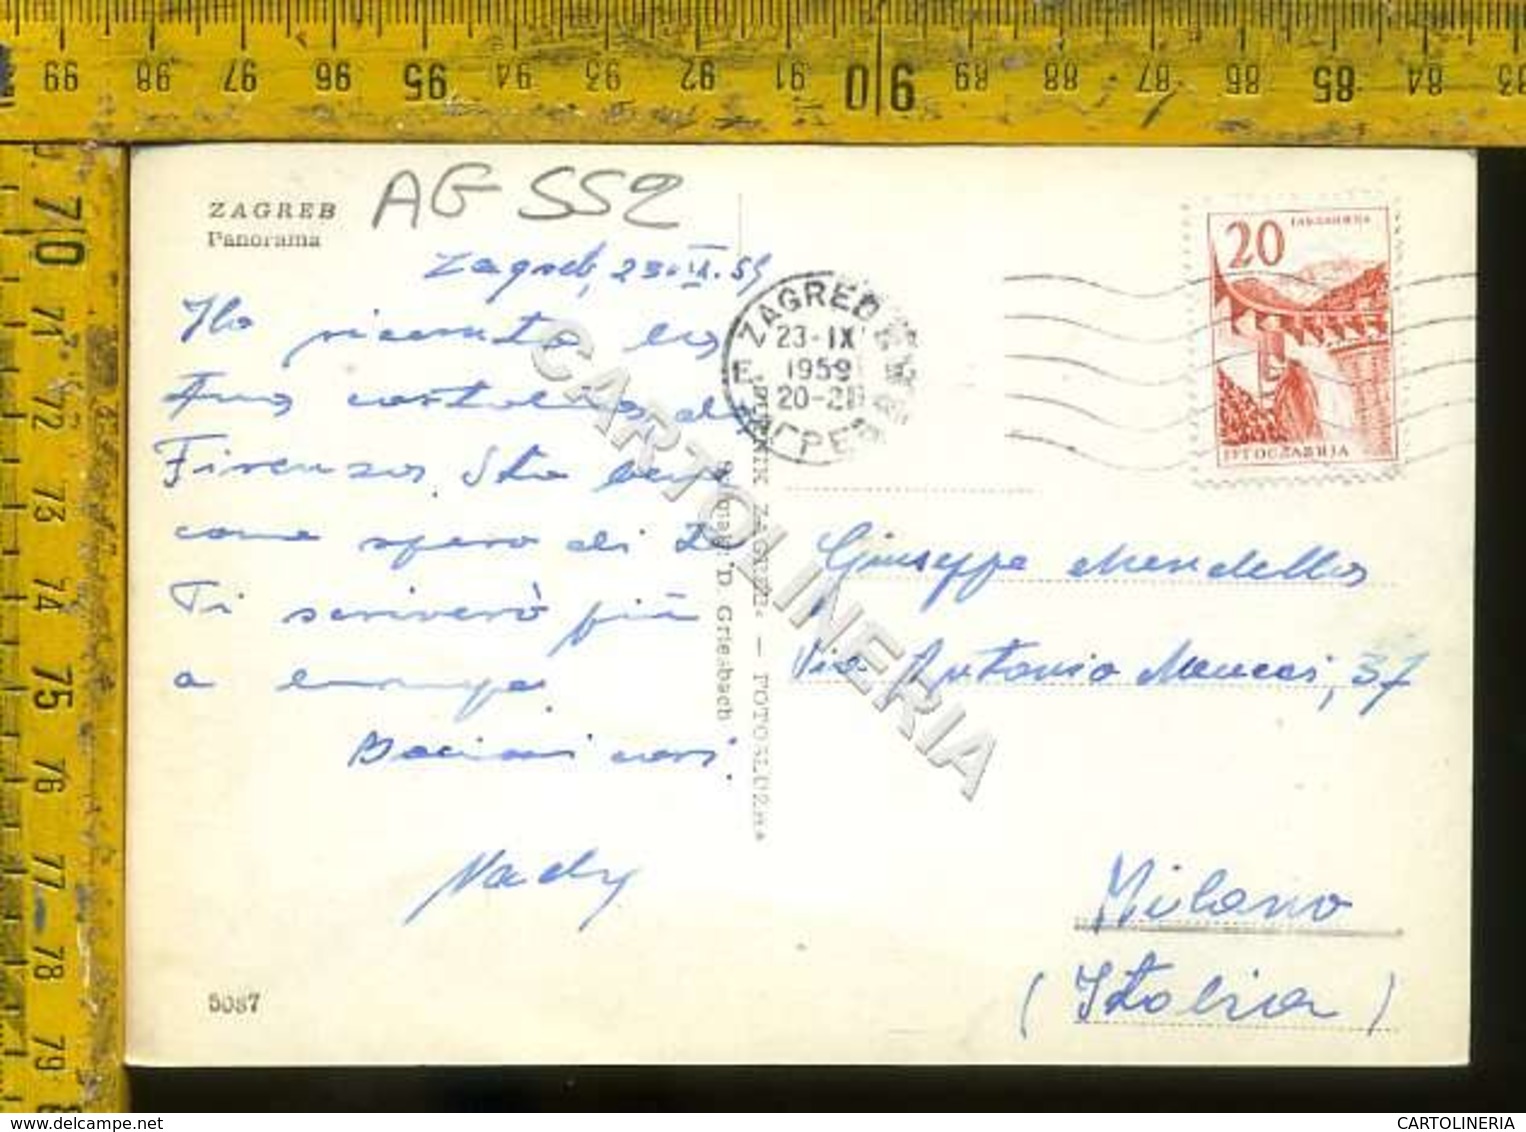 99 98 97 96 95 94 93 92 91 90 89 88 87 86 85 84 83
70 71 72 73 74 75 76 77 78 79 8
ZAGREB
Panorama
AG 552
Zagreb, 23.IX.59
Ho ricevuto la
tua cartolina di
Firenze. Sto bene
come spero di Te
Ti scriverò più
a lungo.
Bacioni cari.
Nady
5087
ZAGREB
23-IX
1959
20-21
ЗАГРЕБ
PUTNIK ZAGREB. —
D. Griesbach
CARTOLINERIA
20
ЈАБЛАНИЦА
ЈУГОСЛАВИЈА
Giuseppe
Via Antonio Meucci, 37
Milano
(Italia)
CARTOLINERIA